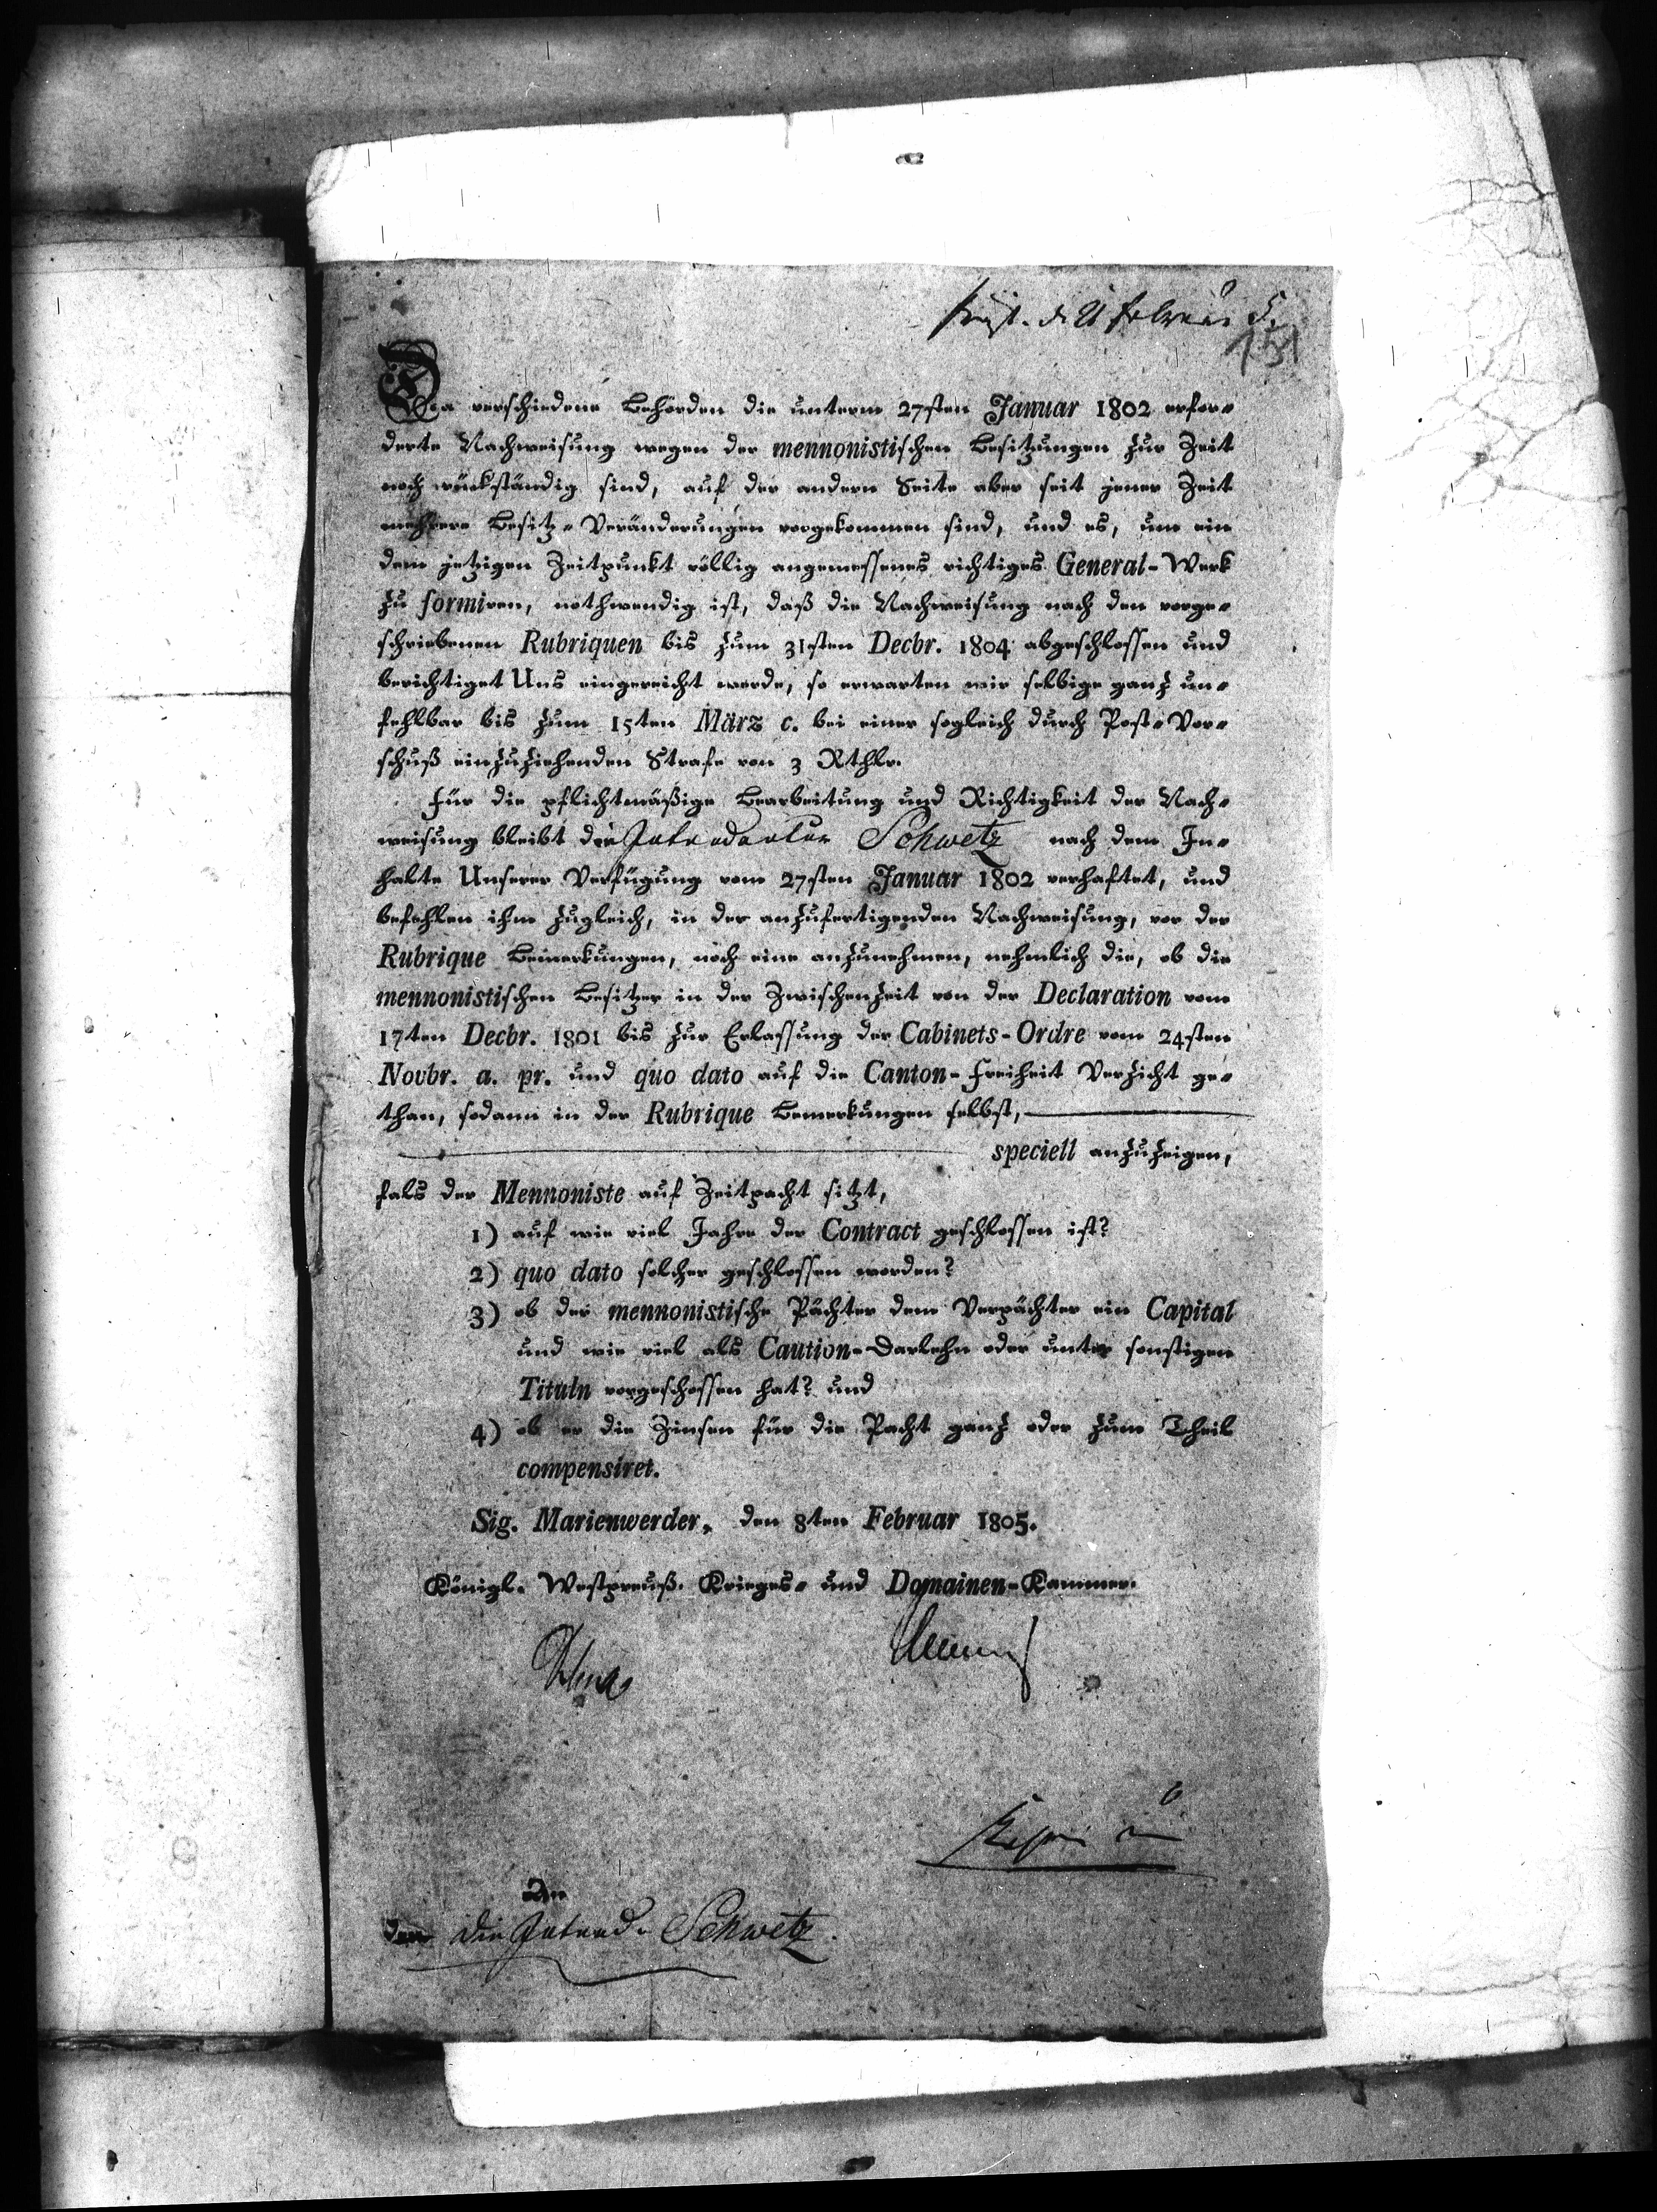 151
Da verschiedene Behörden die unterm 27sten Januar 1802 erfor-
derte Nachweisung wegen der mennonistischen Besitzungen zur Zeit
noch rückständig sind, auf der andern Seite aber seit jener Zeit
mehrere Besitz-Veränderungen vorgekommen sind, und es, um ein
dem jetzigen Zeitpunkt völlig angemessenes richtiges General-Werk
zu formiren, nothwendig ist, daß die Nachweisung nach den vorge-
schriebenen Rubriquen bis zum 31sten Decbr. 1804 abgeschlossen und
berichtiget Uns eingereicht werde, so erwarten wir selbige ganz un-
fehlbar bis zum 15ten März c. bei einer sogleich durch Post-Vor-
schuß einzuziehenden Strafe von 3 Rthlr.
Für die pflichtmäßige Bearbeitung und Richtigkeit der Nach-
weisung bleibt die Intendantur Schwetz nach dem In-
halte Unserer Verfügung vom 27sten Januar 1802 verhaftet, und
befehlen ihm zugleich, in der anzufertigenden Nachweisung, vor der
Rubrique Bemerkungen, noch eine anzunehmen, nehmlich die, ob die
mennonistischen Besitzer in der Zwischenzeit von der Declaration vom
17ten Decbr. 1801 bis zur Erlassung der Cabinets-Ordre vom 24sten
Novbr. a. pr. und quo dato auf die Canton-Freiheit Verzicht ge-
than, sodann in der Rubrique Bemerkungen selbst,
speciell anzuzeigen,
fals der Mennoniste auf Zeitpacht sitzt,
1) auf wie viel Jahre der Contract geschlossen ist?
2) quo dato solcher geschlossen worden?
3) ob der mennonistische Pächter dem Verpächter ein Capital
und wie viel als Caution-Darlehn oder unter sonstigen
Tituln vorgeschossen hat? und
4) ob er die Zinsen für die Pacht ganz oder zum Theil
compensiret.
Sig. Marienwerder, den 8ten Februar 1805.
Königl. Westpreuß. Krieges- und Domainen-Kammer.
An
den die Intend. Schwetz.